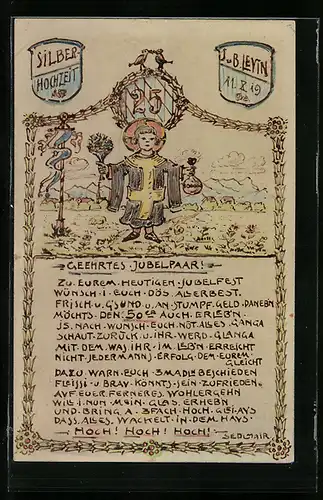 SILBER
HOCHZEIT
J. u B. LEVIN
11. X. 19
25
GEEHRTES JUBELPAAR!
ZU EUREM HEUTIGEN JUBELFEST
WÜNSCH I EUCH DÖS ALLERBEST.
FRISCH U. GSUND U. AN STUMPF GELD DANEBN
MÖCHTS DEN 50ER AUCH ERLEBN.
IS NACH WUNSCH EUCH NOT ALLES GANGA
SCHAUT ZURÜCK U. IHR WERD GLANGA
MIT DEM WAS IHR IM LEBN ERREICHT
NICHT JEDERMANNS ERFOLG DEM EUREM
GLEICHT
DAZU WARN EUCH 3 MADLN BESCHIEDEN
FLEISSI U BRAV KÖNNTS SEIN ZUFRIEDEN
AUF EUER FERNERES WOHLERGEHN
WILL I NUN MEIN GLAS ERHEBN
UND BRING A 3FACH HOCH GLEI AUS
DASS ALLES WACKELT IN DEM HAUS
HOCH! HOCH! HOCH!
SEDLMAIR